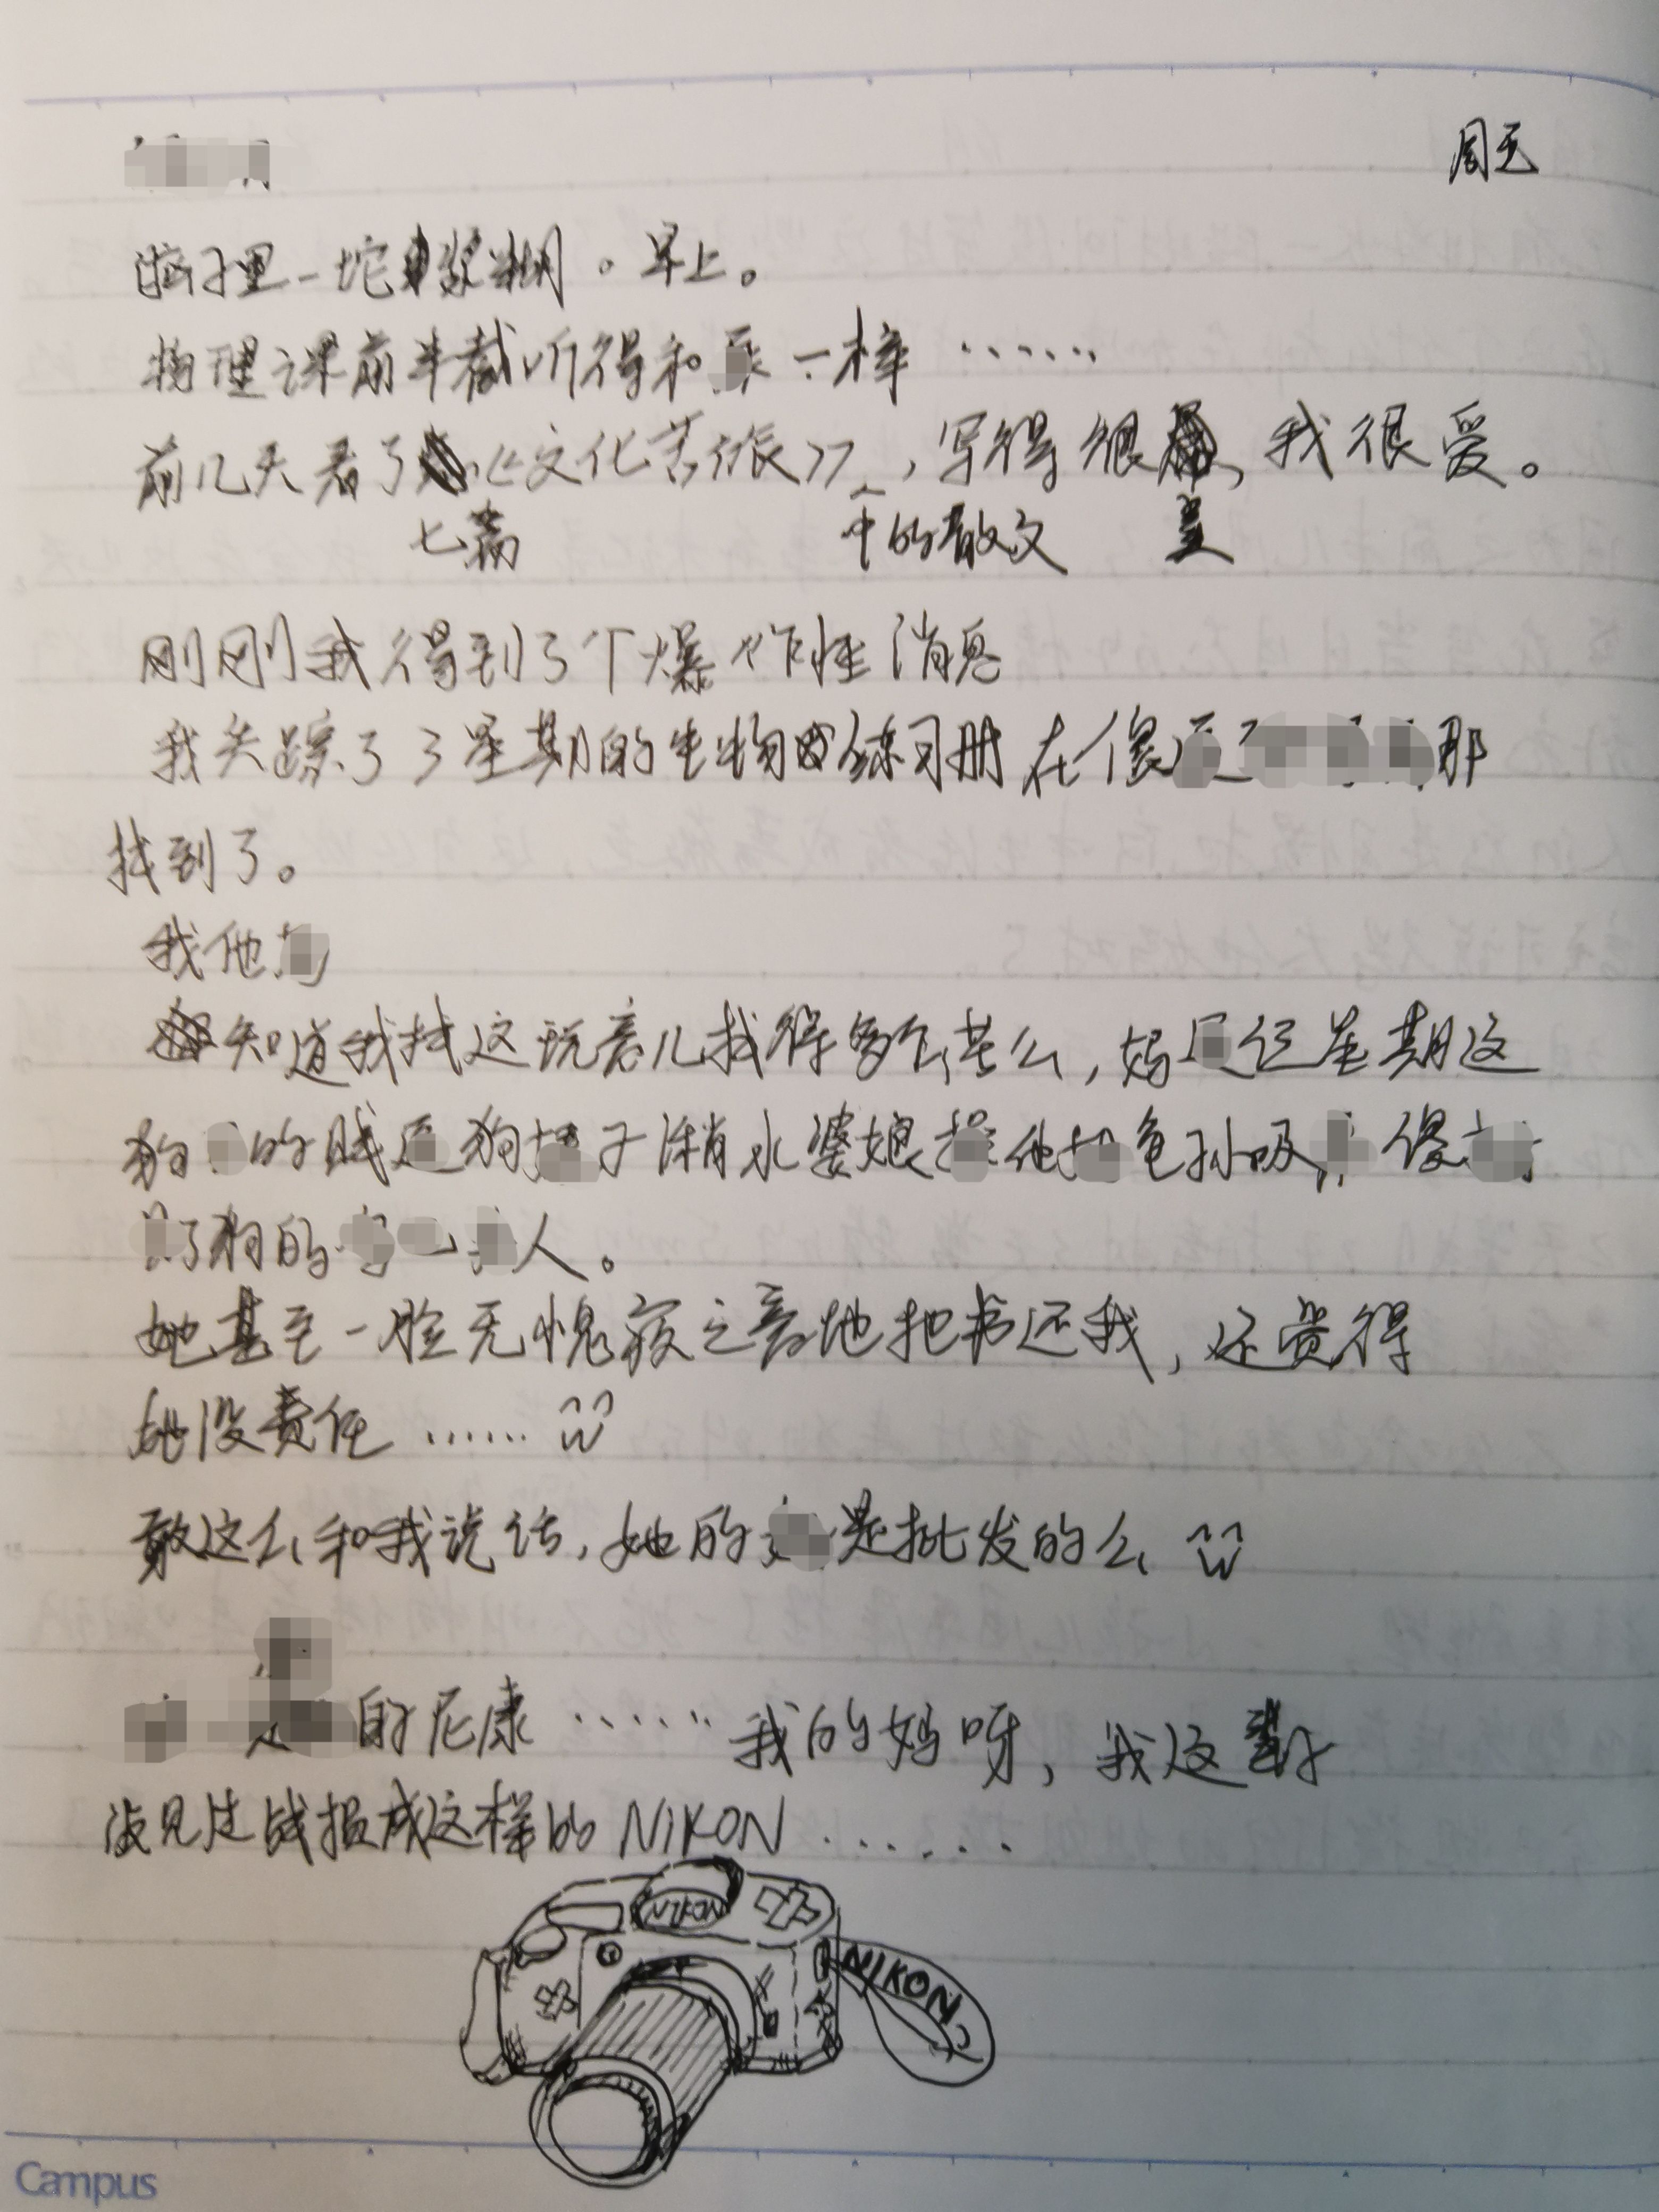 周五
脑子里一坨浆糊。早上。
物理课前半截听得和一样……
前几天看了《文化苦旅》,写得很,我很爱。
七篇 中的散文 美
刚刚我得到了个爆炸性消息
我失踪了3星期的生物练习册在傻那
找到了。
我他
知道我找这玩意儿找得多么苦么,妈星期这
狗的贱狗子潲水婆娘他色孙吸傻
狗的人。
她甚至一脸无愧疚之意地把书还我,还觉得
她没责任……
敢这么和我说话,她的是批发的么
的尼康……我的妈呀,我这辈子
没见过战损成这样的NIKON……
NIKON
NIKON
Campus